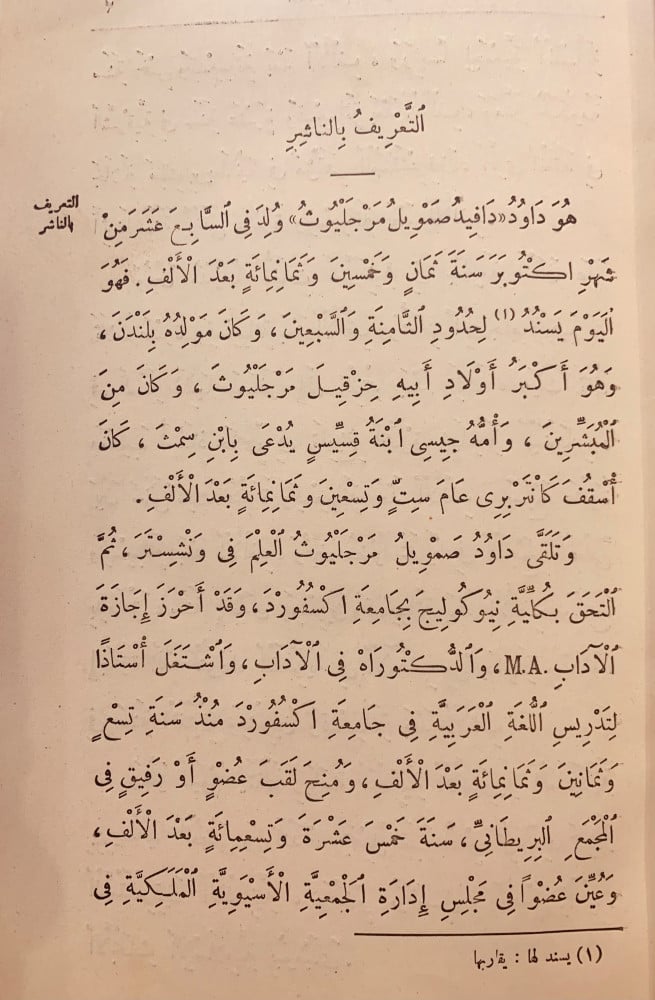 اَلتَّعْرِيفُ بِالنَاشِرِ
التعريف
بالناشر
هُوَ دَاوُدُ «دَافِيدُ صَمْوِيلُ مَرْجَلْيُوثُ» وُلِدَ فِي اَلسَّابِعَ عَشَرَ مِنْ
شَهْرِ اكْتُوبَرَ سَنَةَ ثَمَانٍ وَخَمْسِينَ وَثَمَانِمِائَةٍ بَعْدَ الْأَلْفِ. فَهُوَ
اُلْيَوْمَ يَسْنُدُ (١) لِحُدُودِ الثَّامِنَةِ وَالسَّبْعِينَ، وَكَانَ مَوْلِدُهُ بِلَنْدَنَ،
وَهُوَ أَكْبَرُ أَوْلَادِ أَبِيهِ حِزْقِيلَ مَرْجَلْيُوثَ، وَكَانَ مِنَ
اَلْمُبَشِّرِينَ، وَأُمُّهُ جِيسِي ابْنَةُ قِسِّيسٍ يُدْعَى بِابْنِ سِمْثَ، كَانَ
أُسْقُفَ كَانْتَرْبِرِى عَامَ سِتٍّ وَتِسْعِينَ وَثَمَانِمِائَةٍ بَعْدَ الْأَلْفِ.
وَتَلَقَّى دَاوُدُ صَمْوِيلُ مَرْجَلْيُوثُ اَلْعِلْمَ فِي وَنْشِسْتَرَ، ثُمَّ
اَلْتَحَقَ بِكُلِّيَّةِ نِيُوكُولِيجَ بِجَامِعَةِ اكْسُفُورْدَ، وَقَدْ أَحْرَزَ إِجَازَةَ
اَلْآدَابِ M.A.، وَالدُّكْتُورَاهْ فِي الْآدَابِ، وَاشْتَغَلَ أُسْتَاذًا
لِتَدْرِيسِ اللُّغَةِ الْعَرَبِيَّةِ فِي جَامِعَةِ اكْسُفُورْدَ مُنْذُ سَنَةِ تِسْعٍ
وَثَمَانِينَ وَثَمَانِمِائَةٍ بَعْدَ الْأَلْفِ، وَمُنِحَ لَقَبَ عُضْوٍ أَوْ رَفِيقٍ فِي
اَلْمَجْمَعِ اَلْبِرِيطَانِيِّ، سَنَةَ خَمْسَ عَشْرَةَ وَتِسْعِمِائَةٍ بَعْدَ الْأَلْفِ،
وَعُيِّنَ عُضْوًا فِي مَجْلِسِ إِدَارَةِ اَلْجَمْعِيَّةِ الْأَسْيَوِيَّةِ اَلْمَلَكِيَّةِ فِي
(١) يسند لها : يقاربها